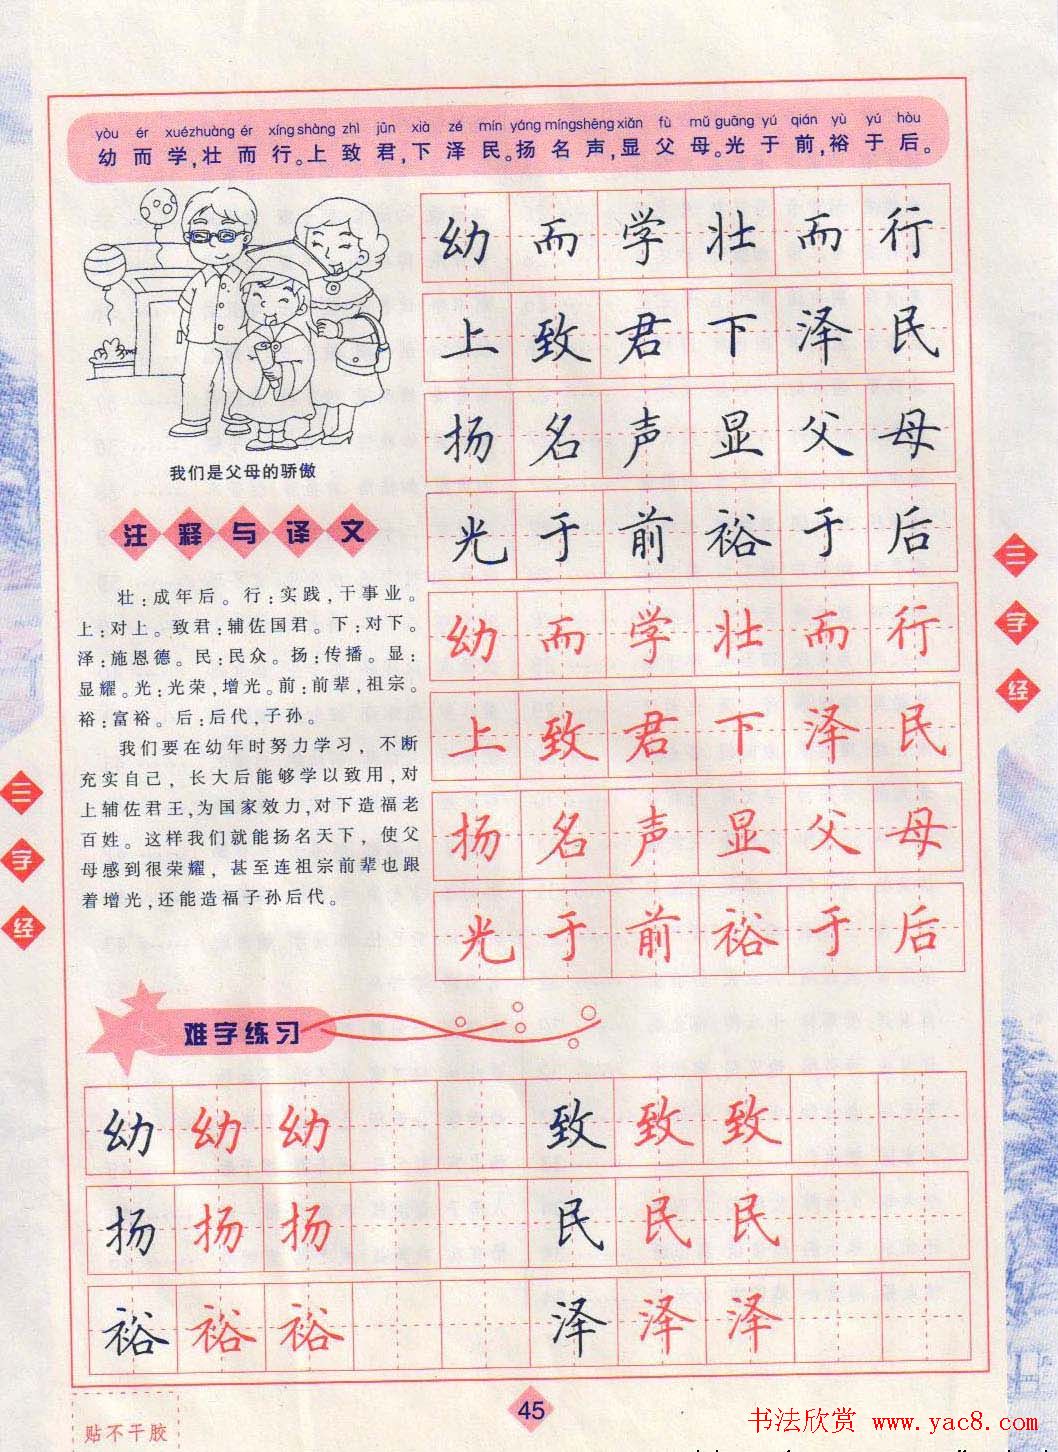 yòu ér xué zhuàng ér xíng shàng zhì jūn xià zé mín yáng míng shēng xiǎn fù mǔ guāng yú qián yù yú hòu
幼而学,壮而行。上致君,下泽民。扬名声,显父母。光于前,裕于后。
幼而学壮而行
上致君下泽民
扬名声显父母
光于前裕于后
幼而学壮而行
上致君下泽民
扬名声显父母
光于前裕于后
我们是父母的骄傲
注释与译文
壮:成年后。行:实践,干事业。
上:对上。致君:辅佐国君。下:对下。
泽:施恩德。民:民众。扬:传播。显:
显耀。光:光荣,增光。前:前辈,祖宗。
裕:富裕。后:后代,子孙。
我们要在幼年时努力学习，不断
充实自己，长大后能够学以致用,对
上辅佐君王,为国家效力,对下造福老
百姓。这样我们就能扬名天下，使父
母感到很荣耀，甚至连祖宗前辈也跟
着增光,还能造福子孙后代。
三字经
三字经
难字练习
幼幼幼 致致致
扬扬扬 民民民
裕裕裕 泽泽泽
45
贴不干胶
书法欣赏 www.yac8.com